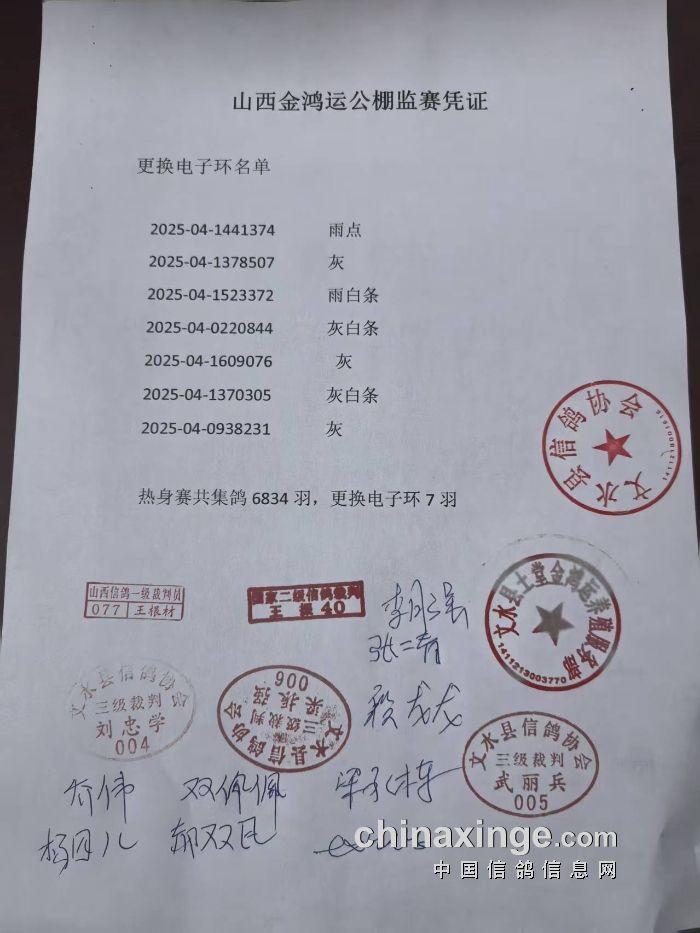 山西金鸿运公棚监赛凭证
更换电子环名单
2025-04-1441374 雨点
2025-04-1378507 灰
2025-04-1523372 雨白条
2025-04-0220844 灰白条
2025-04-1609076 灰
2025-04-1370305 灰白条
2025-04-0938231 灰
热身赛共集鸽 6834 羽，更换电子环 7 羽
文水县信鸽协会
山西信鸽一级裁判员
077 王根材
国家二级信鸽裁判
王 40
文水县土堂金鸿运养殖服务部
1411213003770
张二青
文水县信鸽协会
三级裁判
刘忠学
004
文水县信鸽协会
三级裁判
梁振强
006
段龙龙
文水县信鸽协会
三级裁判
武丽兵
005
乔伟 双佩佩
杨月儿
chinaxinge.com
中国信鸽信息网